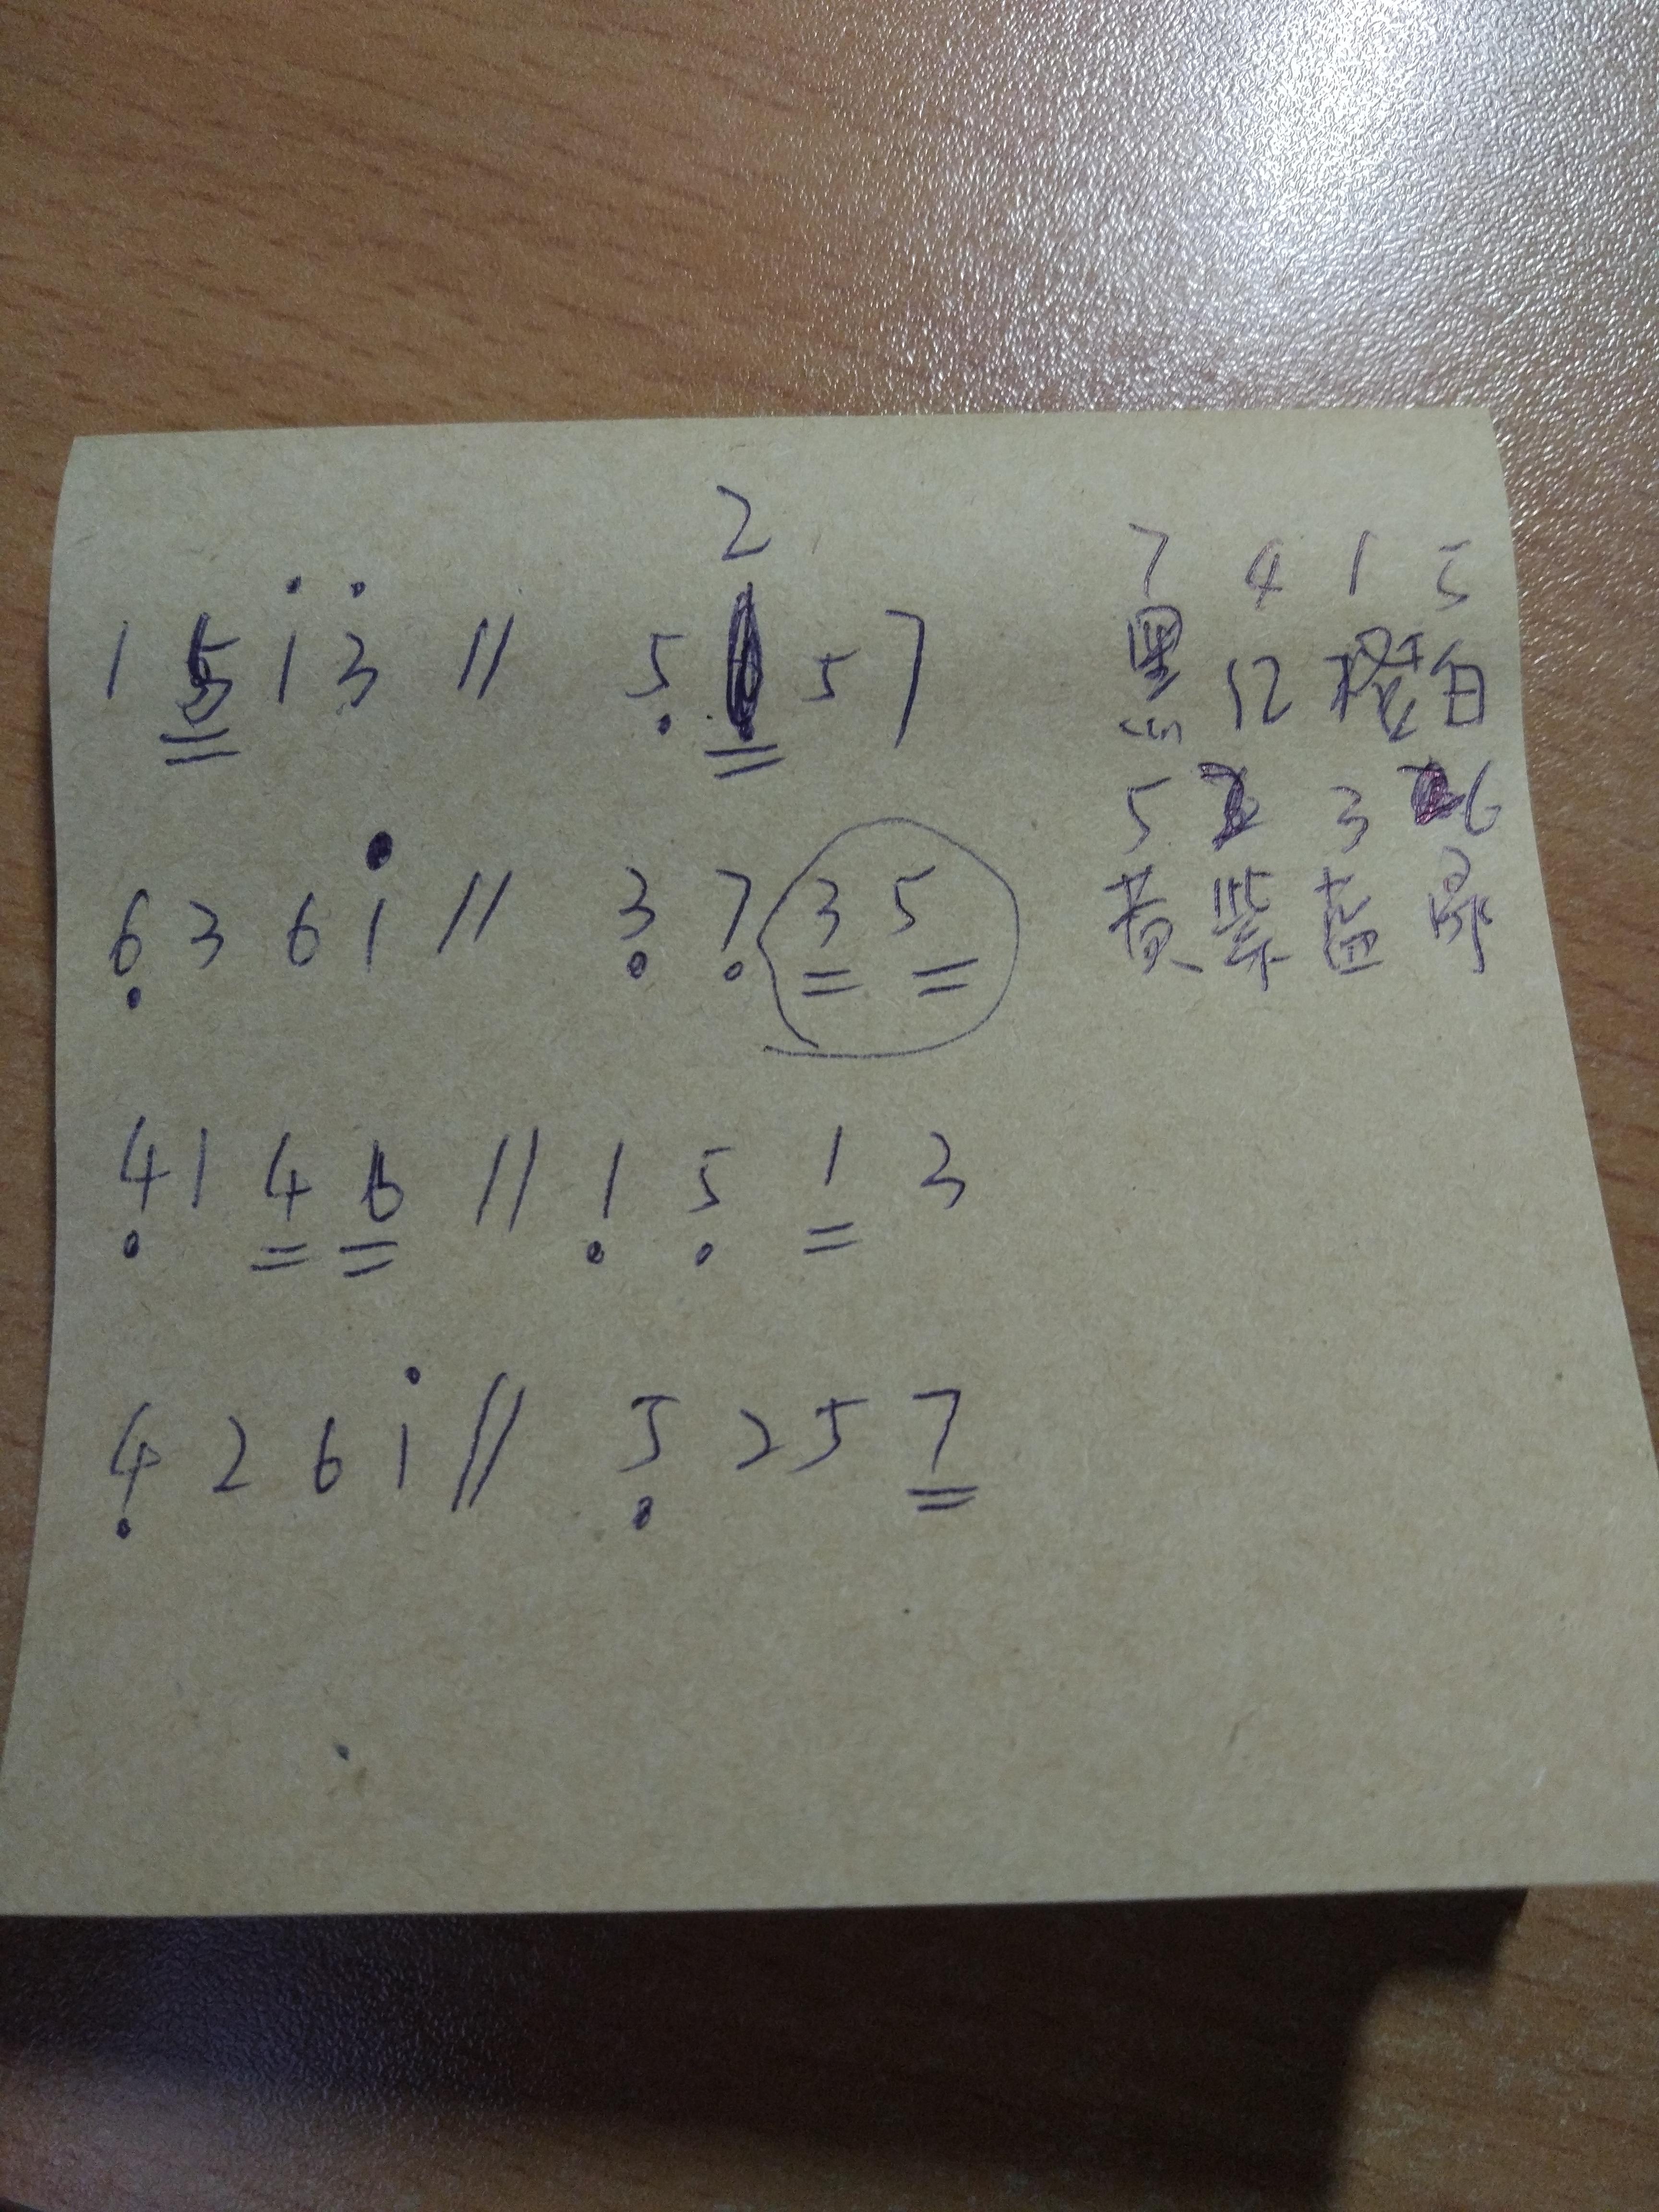 2
1 5 i 3 // 5 5 7
6 3 6 i // 3 7 3 5
4 1 4 6 // 1 5 1 3
4 2 6 i // 5 2 5 7
7 4 1 5
黑 红 橙 白
5 3 6
黄 紫 蓝